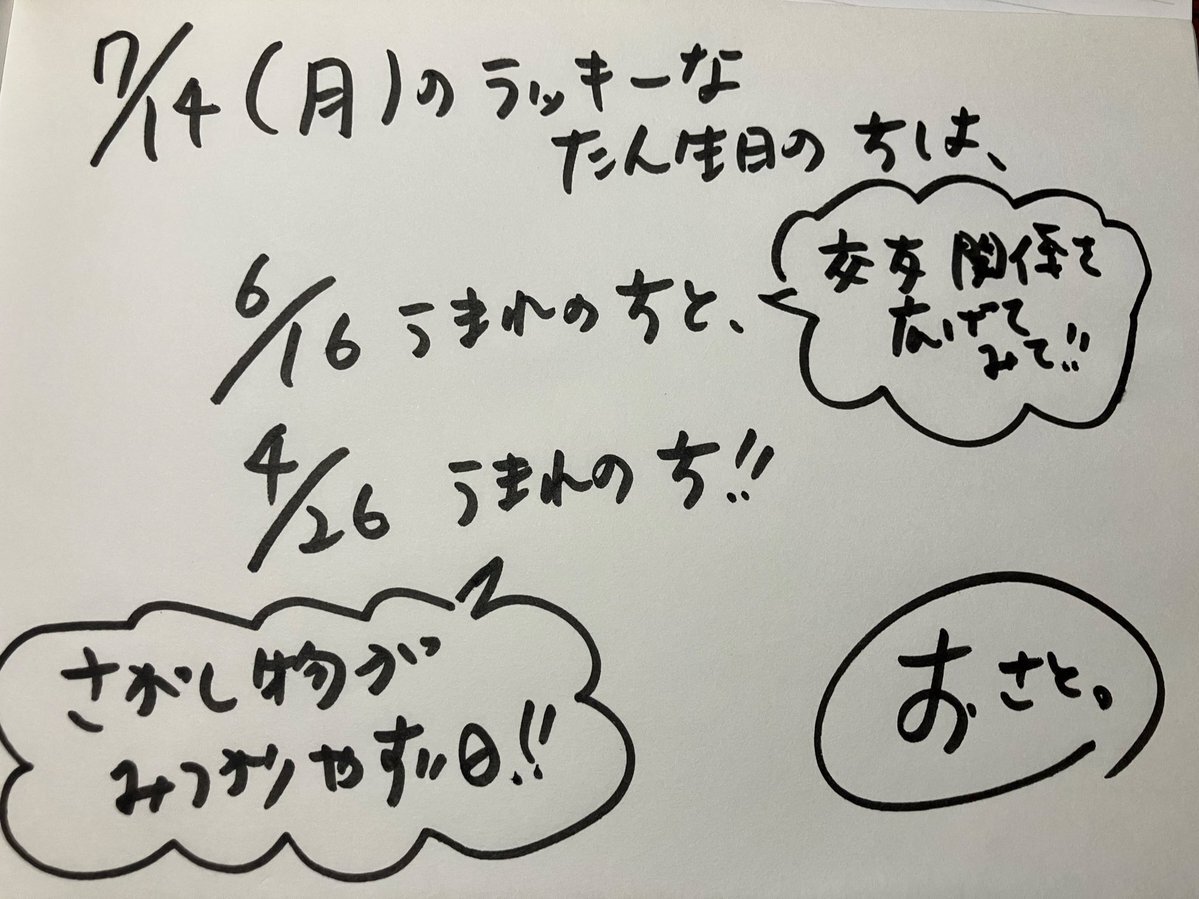 7/14(月)のラッキーな
たん生日の方は、
6/16 うまれの方と、
交友関係を
広げて
みて!!
4/26 うまれの方!!
さがし物が
みつかりやすい日!!
おさと。